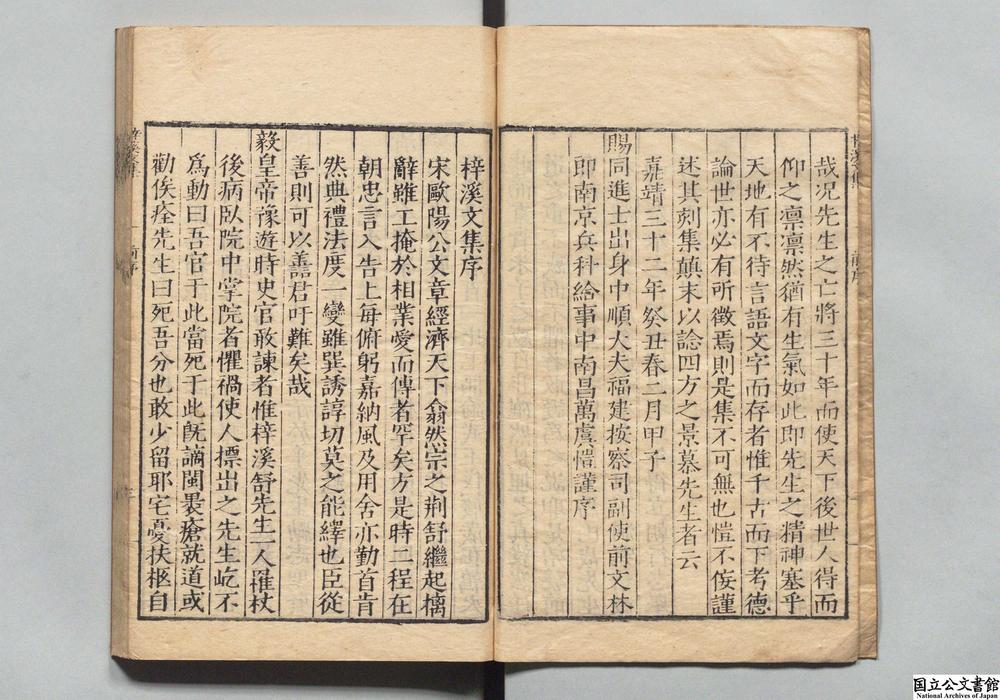 哉况先生之亡將三十年而使天下後世人得而
仰之凛凛然猶有生氣如此即先生之精神塞乎
天地有不待言語文字而存者惟千古而下考德
論世亦必有所徵焉則是集不可無也愷不佞謹
述其刻集顛末以諗四方之景慕先生者云
嘉靖三十二年癸丑春二月甲子
賜同進士出身中順大夫福建按察司副使前文林
郎南京兵科給事中南昌萬虞愷謹序
梓溪文集序
宋歐陽公文章經濟天下翕然宗之荆舒繼起樆
辭雖工掩於相業愛而傳者罕矣方是時二程在
朝忠言入告上每俯躬嘉納風及用舍亦勤首肯
然典禮法度一變雖巽誘諄切莫之能繹也臣從
善則可以譱君吁難矣哉
毅皇帝豫遊時史官敢諫者惟梓溪舒先生一人罹杖
後病臥院中掌院者懼禍使人標出之先生屹不
爲動曰吾官于此當死于此旣謫閩裹瘡就道或
勸俟痊先生曰死吾分也敢少留耶宅憂扶柩自
梓溪
前序
国立公文書館
National Archives of Japan